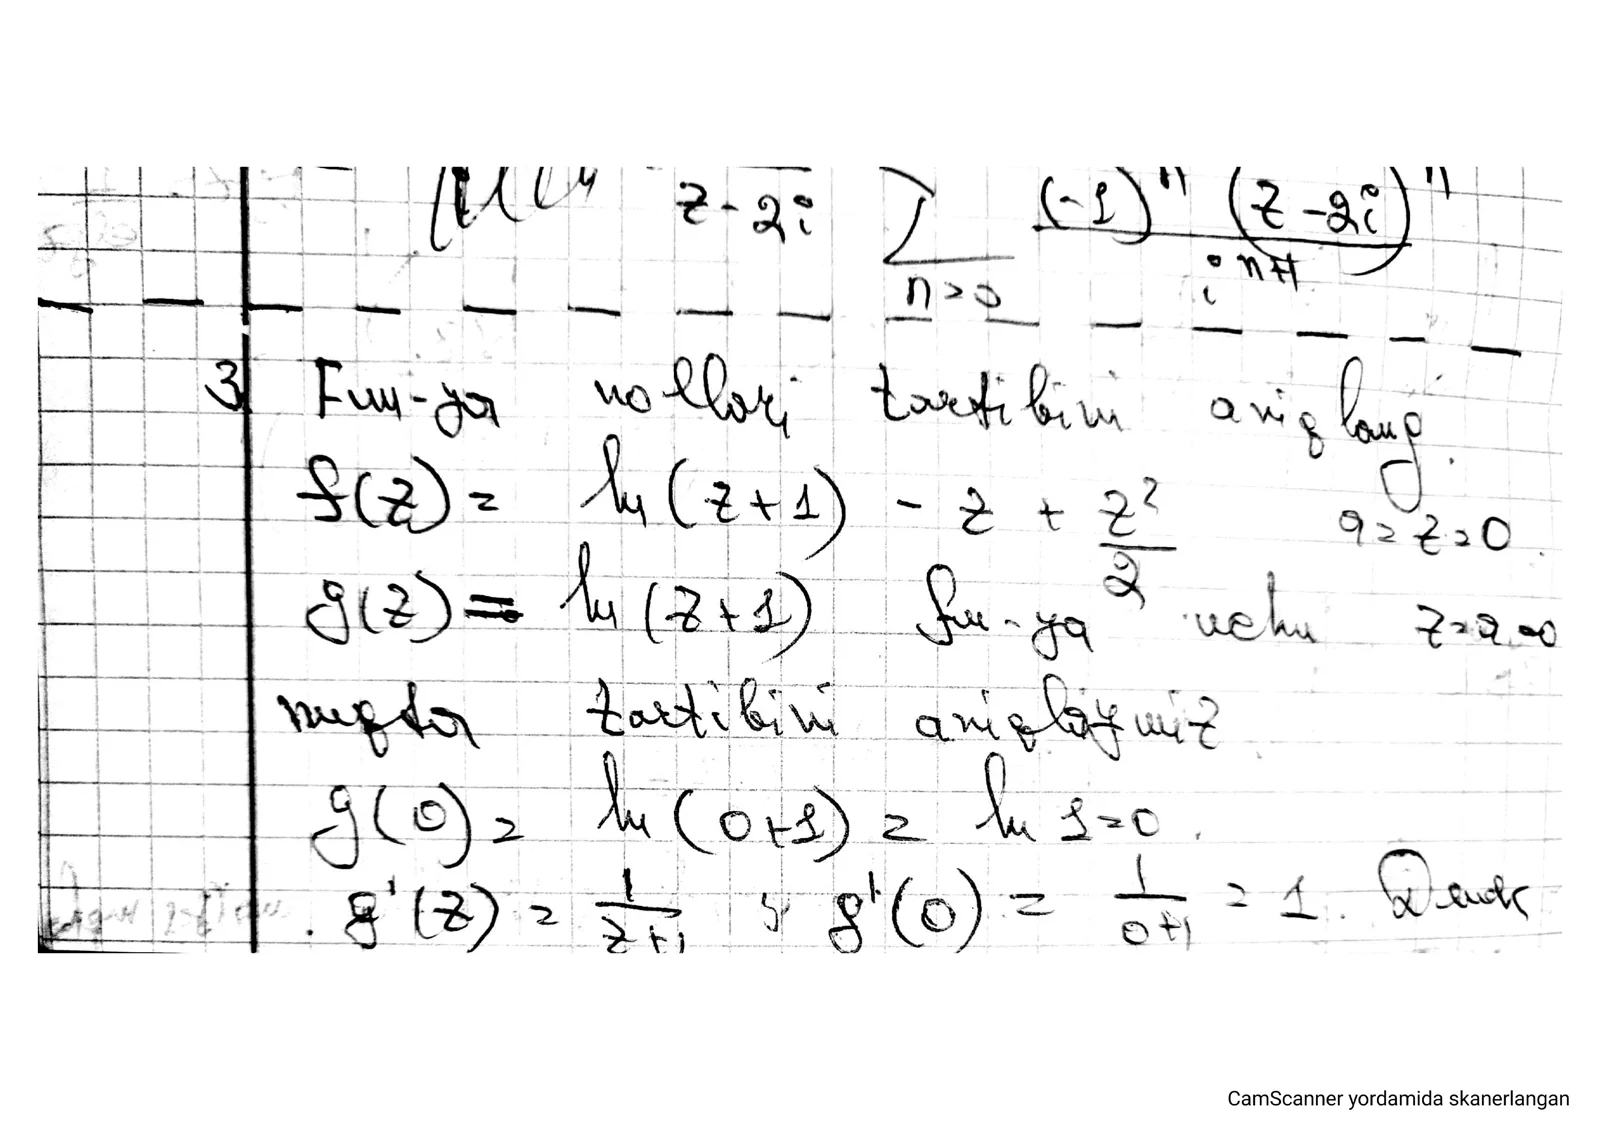 z - 2i ∑ (-1)ⁿ (z - 2i)ⁿ
n=0 iⁿ⁺¹
3 Fun-ya nollari tartibini aniqlang.
f(z) = ln(z+1) - z + z²/2 a = z = 0.
g(z) = ln(z+1) fun-ya uchun z=a=0
nuqta tartibini aniqlaymiz
g(0) = ln(0+1) = ln 1=0.
g'(z) = 1/z+1 ; g'(0) = 1/0+1 = 1. Demak
CamScanner yordamida skanerlangan